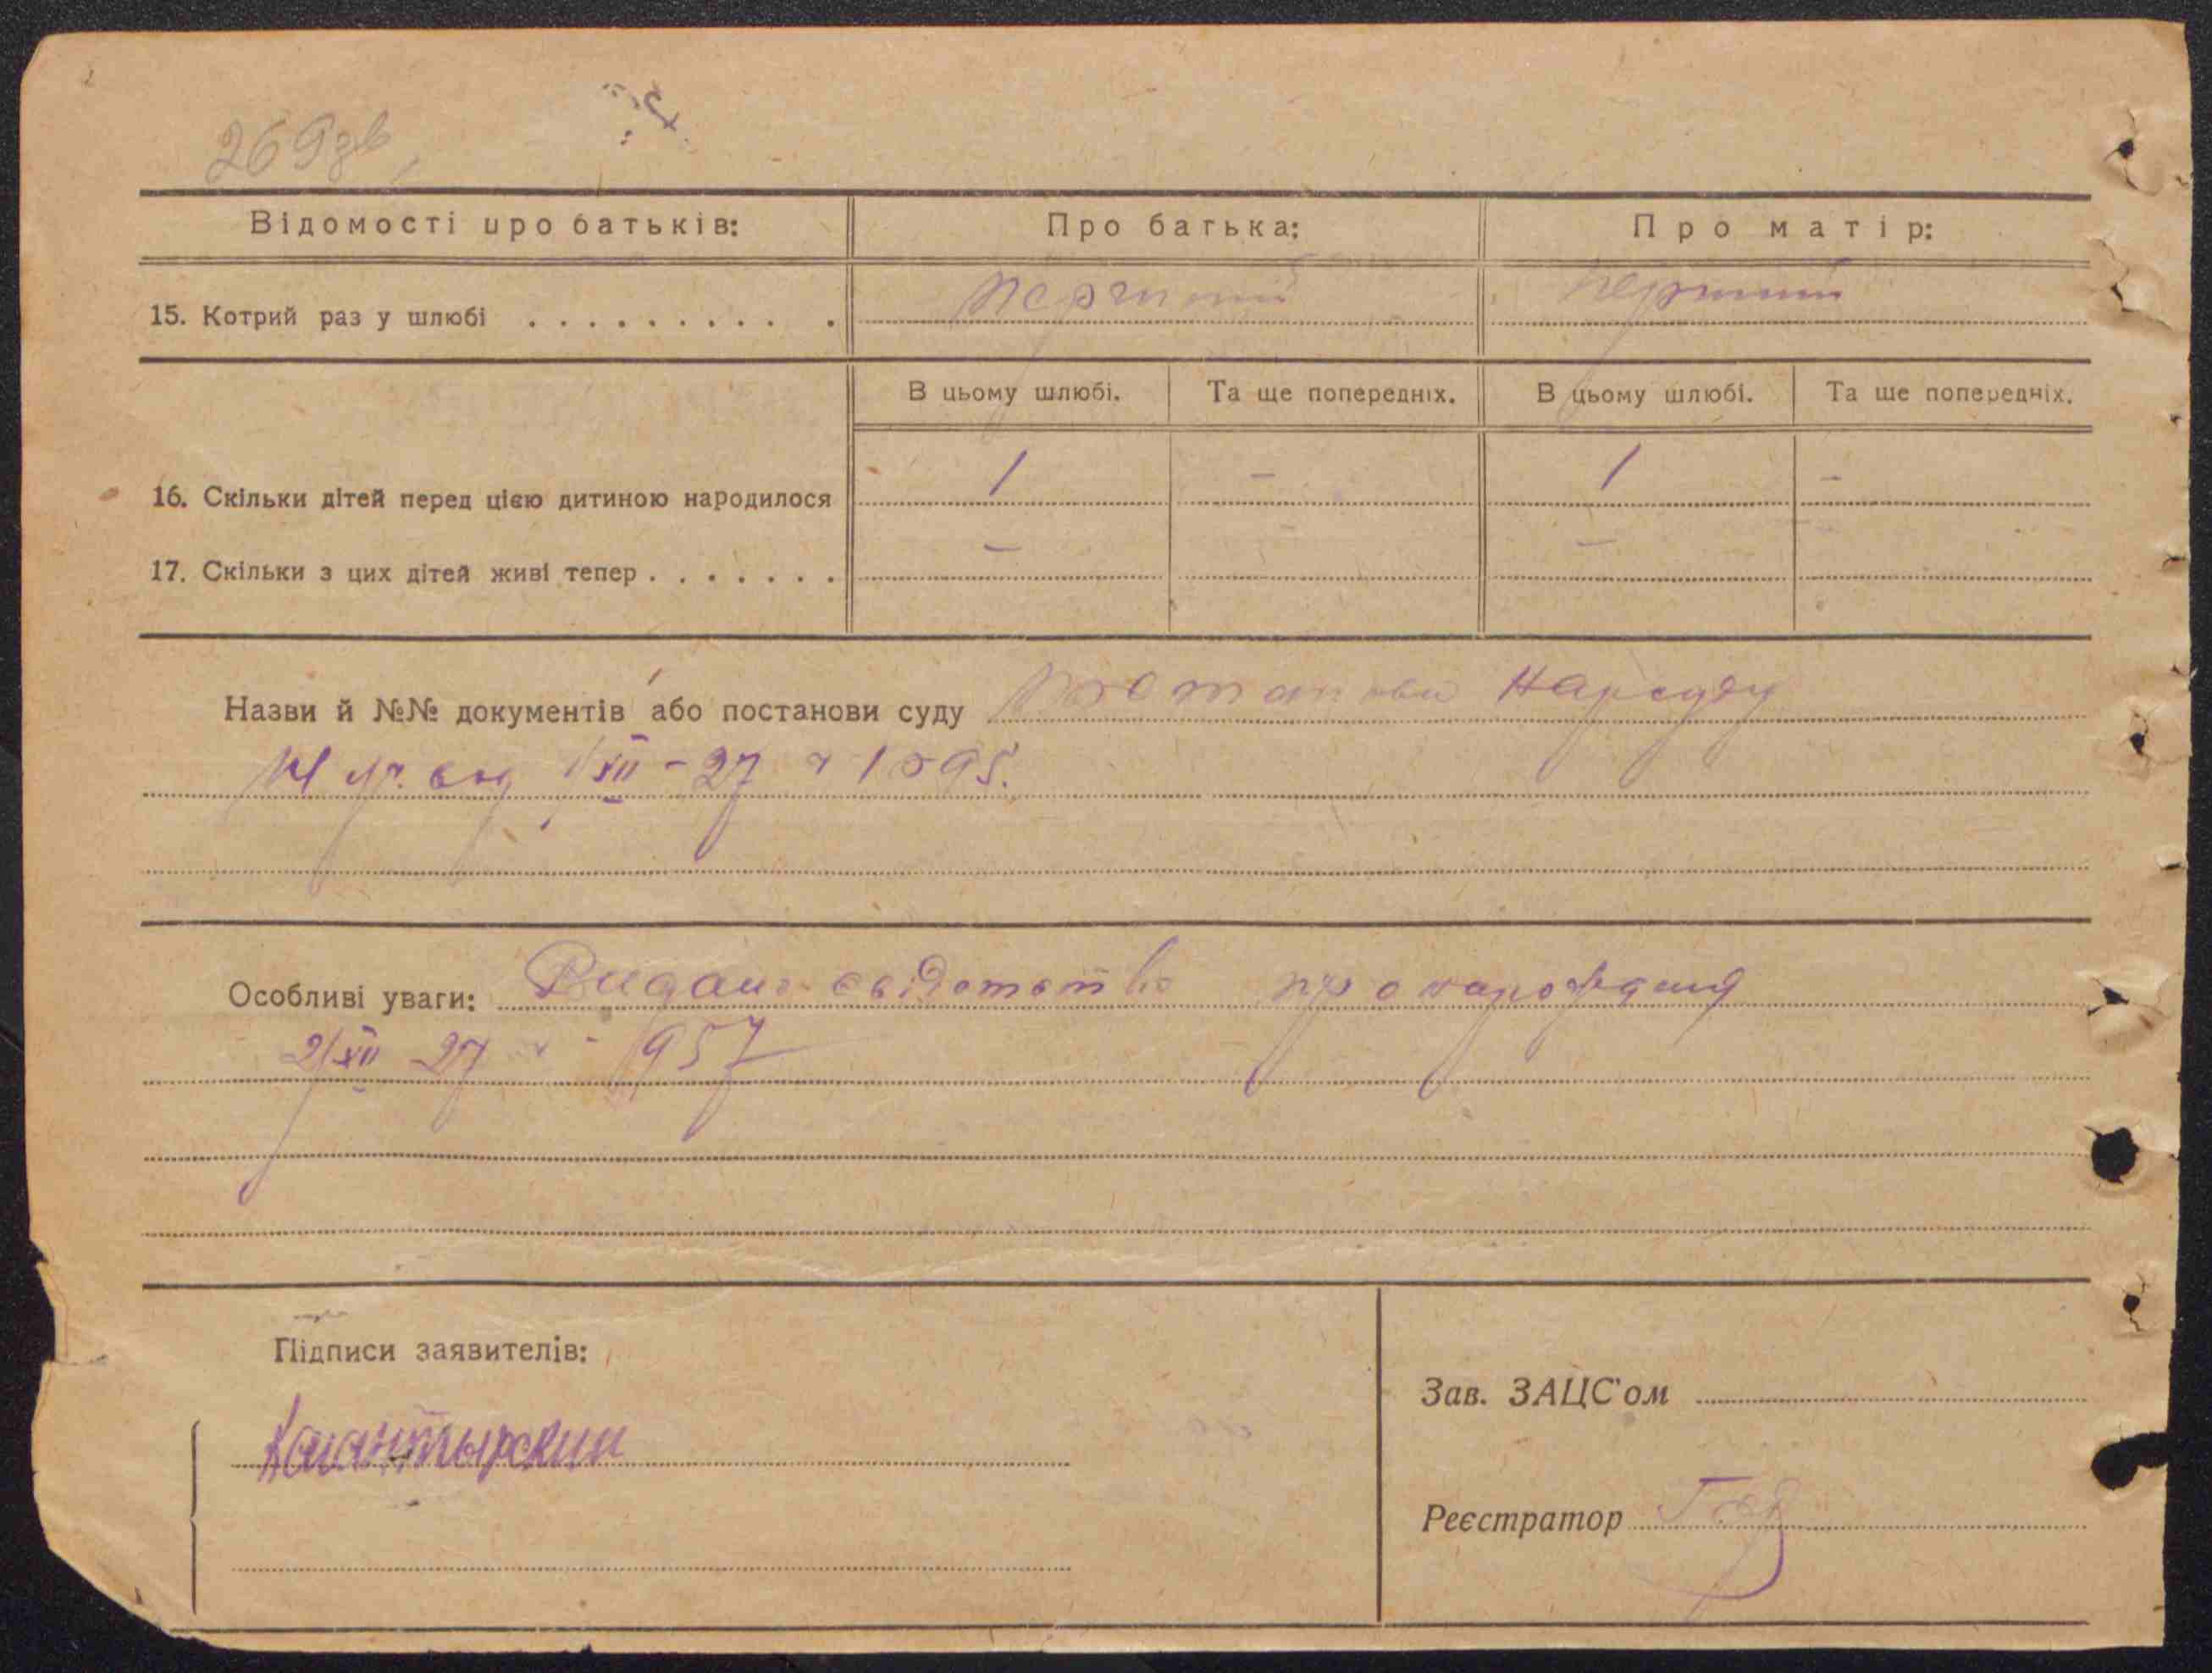 269зв
Відомості про батьків: Про батька: Про матір:
15. Котрий раз у шлюбі . . . . . . . . . . . перший перший
В цьому шлюбі. Та ще попередніх. В цьому шлюбі. Та ще попередніх.
16. Скільки дітей перед цією дитиною народилося 1 – 1 –
17. Скільки з цих дітей живі тепер . . . . . . . – –
Назви й №№ документів або постанови суду постанови Нарсуду
від 1/XII – 27 1095.
Особливі уваги: Видано свідотство про народження
2/XII 27 – 1957
Підписи заявителів:
Зав. ЗАЦС'ом
Реєстратор